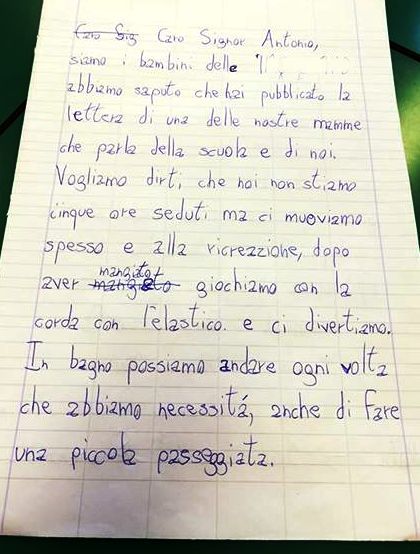 Caro Sig Caro Signor Antonio,
siamo i bambini delle
abbiamo saputo che hai pubblicato la
lettera di una delle nostre mamme
che parla della scuola e di noi.
Vogliamo dirti, che noi non stiamo
cinque ore seduti ma ci muoviamo
spesso e alla ricreazzione, dopo
aver mangiato mangiato giochiamo con la
corda con l'elastico. e ci divertiamo.
In bagno possiamo andare ogni volta
che abbiamo necessitá, anche di fare
una piccola passeggiata.